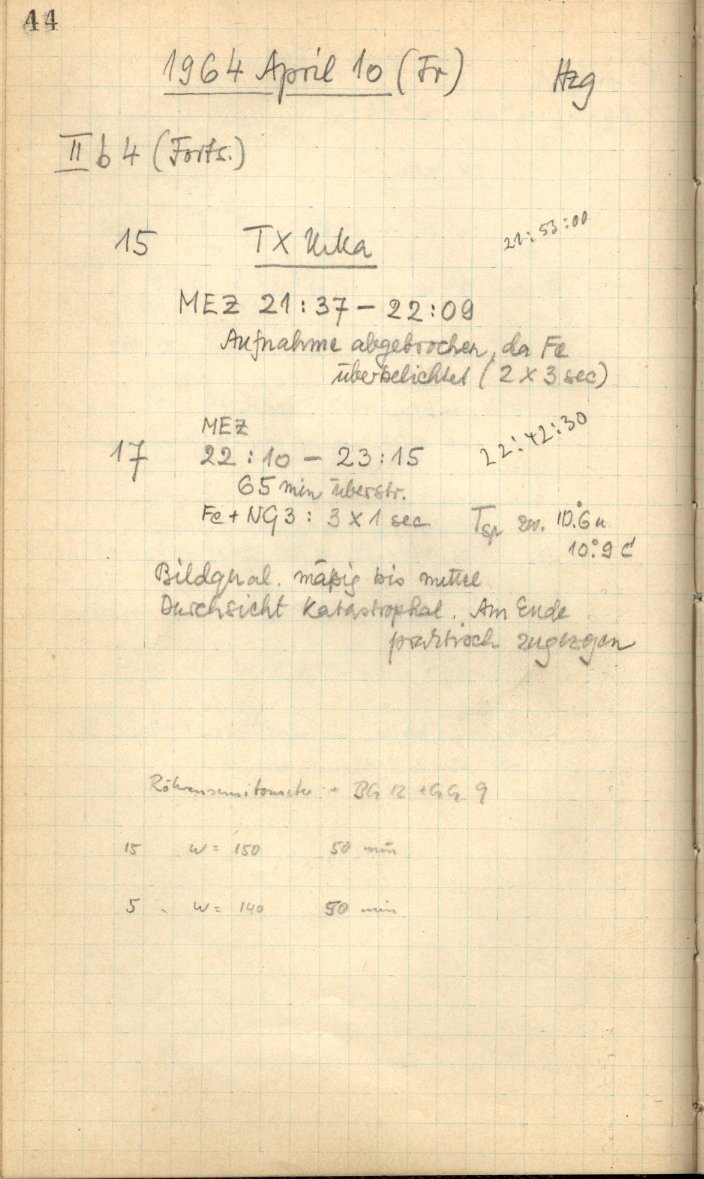 44
1964 April 10 (Fr) Hzg
II b 4 (Forts.)
15 TX UMa 21:53:00
MEZ 21:37 – 22:09
Aufnahme abgebrochen, da Fe
überbelichtet (2 × 3 sec)
MEZ
17 22:10 – 23:15 22:42:30
65 min überstr.
Fe + NG3 : 3 × 1 sec Tsp zw. 10.°6 u.
10.°9 C
Bildqual. mäßig bis mittel
Durchsicht katastrophal. Am Ende
praktisch zugezogen
Röhrensensitometer + BG 12 + GG 9
15 W = 150 50 min
5 W = 140 50 min